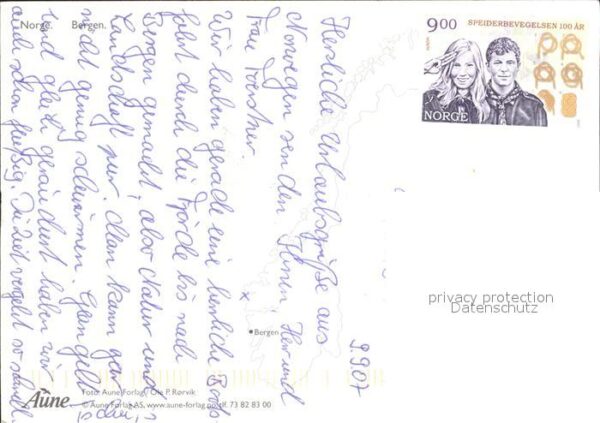 Norge.
Bergen.
9.00
SPEIDERBEVEGELSEN 100 ÅR
NORGE
9.9.07
Herzliche Urlaubsgrüße aus
Norwegen senden Ihnen, Herr und
Frau Foerster.
Wir haben gerade eine herrliche Boots-
fahrt durch die Fjorde bis nach
Bergen gemacht, also Natur und
Landschaft pur. Man kann gar
nicht genug schwärmen.
und gleich
auch schon fleißig. Die Zeit vergeht so schnell.
Bergen
privacy protection
Datenschutz
Aune
Foto: Aune Forlag / Ole P. Rørvik
© Aune Forlag AS, www.aune-forlag.no, tlf. 73 82 83 00